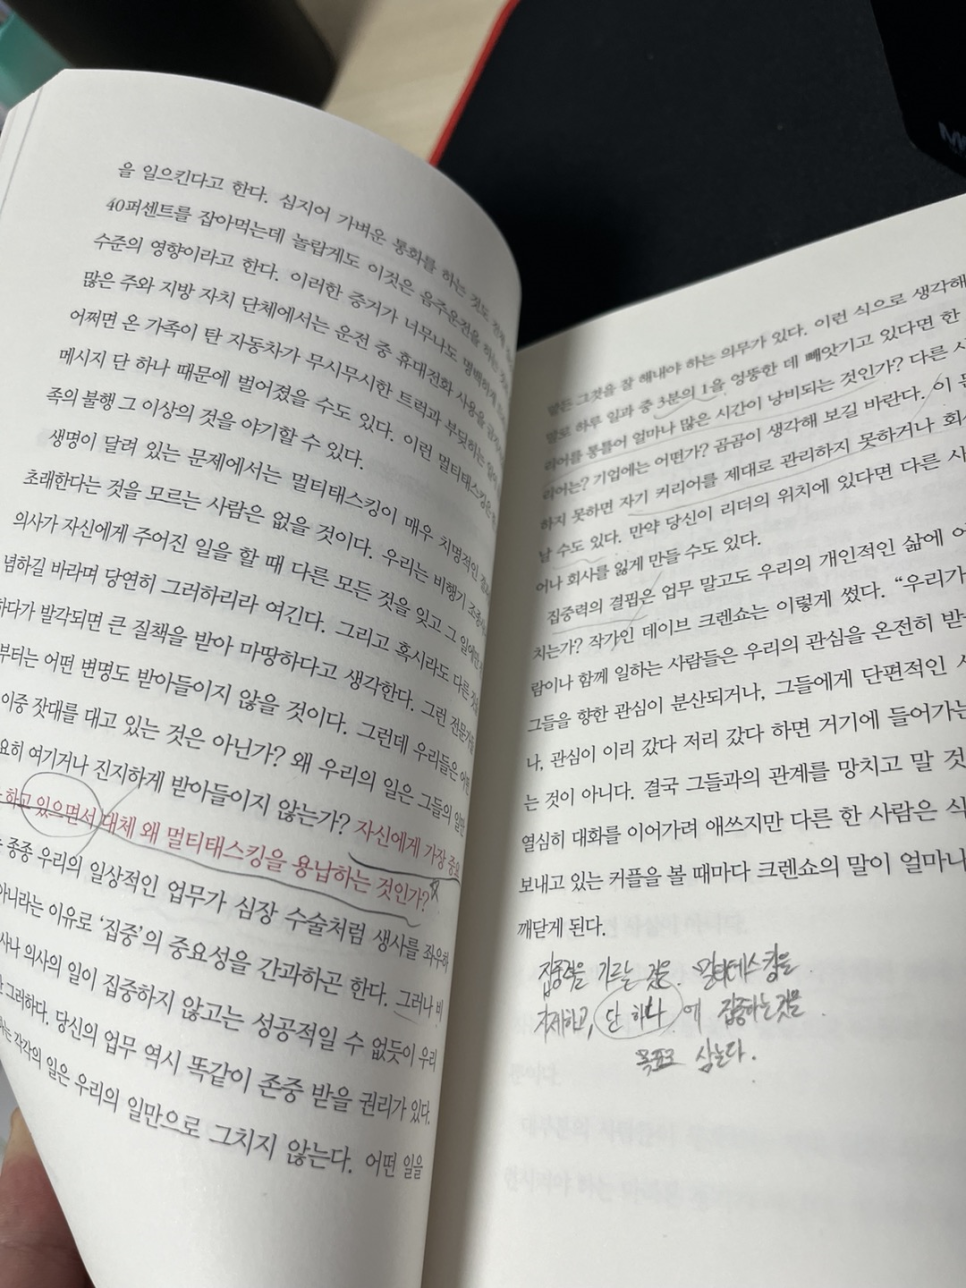 을 일으킨다고 한다. 심지어 가벼운 통화를 하는 것도
40퍼센트를 잡아먹는데 놀랍게도 이것은 음주운전을 하는 것과
수준의 영향이라고 한다. 이러한 증거가 너무나도 명백하게
많은 주와 지방 자치 단체에서는 운전 중 휴대전화 사용을
어쩌면 온 가족이 탄 자동차가 무시무시한 트럭과 부딪히는
메시지 단 하나 때문에 벌어졌을 수도 있다. 이런 멀티태스킹은
족의 불행 그 이상의 것을 야기할 수 있다.
생명이 달려 있는 문제에서는 멀티태스킹이 매우 치명적인
초래한다는 것을 모르는 사람은 없을 것이다. 우리는 비행기
의사가 자신에게 주어진 일을 할 때 다른 모든 것을 잊고 그 일에만
념하길 바라며 당연히 그러하리라 여긴다. 그리고 혹시라도 다른
하다가 발각되면 큰 질책을 받아 마땅하다고 생각한다. 그런
부터는 어떤 변명도 받아들이지 않을 것이다. 그런데 우리들은
이중 잣대를 대고 있는 것은 아닌가? 왜 우리의 일은 그들의
요히 여기거나 진지하게 받아들이지 않는가? 자신에게 가장 중요
하고 있으면서 대체 왜 멀티태스킹을 용납하는 것인가?
종종 우리의 일상적인 업무가 심장 수술처럼 생사를 좌우하
아니라는 이유로 '집중'의 중요성을 간과하곤 한다. 그러나 비
사나 의사의 일이 집중하지 않고는 성공적일 수 없듯이 우리
그러하다. 당신의 업무 역시 똑같이 존중 받을 권리가 있다.
하는 각각의 일은 우리의 일만으로 그치지 않는다. 어떤 일을
그것을 잘 해내야 하는 의무가 있다. 이런 식으로 생각해
하루 일과 중 3분의 1을 엉뚱한 데 빼앗기고 있다면 한
리어를 통틀어 얼마나 많은 시간이 낭비되는 것인가? 다른
리어는? 기업에는 어떤가? 곰곰이 생각해 보길 바란다. 이
하지 못하면 자기 커리어를 제대로 관리하지 못하거나 회
날 수도 있다. 만약 당신이 리더의 위치에 있다면 다른
어나 회사를 잃게 만들 수도 있다.
집중력의 결핍은 업무 말고도 우리의 개인적인 삶에
치는가? 작가인 데이브 크렌쇼는 이렇게 썼다. “우리가
람이나 함께 일하는 사람들은 우리의 관심을 온전히
그들을 향한 관심이 분산되거나, 그들에게 단편적인
나, 관심이 이리 갔다 저리 갔다 하면 거기에 들어가는
는 것이 아니다. 결국 그들과의 관계를 망치고 말
열심히 대화를 이어가려 애쓰지만 다른 한 사람은
보내고 있는 커플을 볼 때마다 크렌쇼의 말이 얼마나
깨닫게 된다.
집중력을 기르는 것은. 멀티태스킹을
자제하고, 단 하나 에 집중하는 것을
목표로 삼는다.